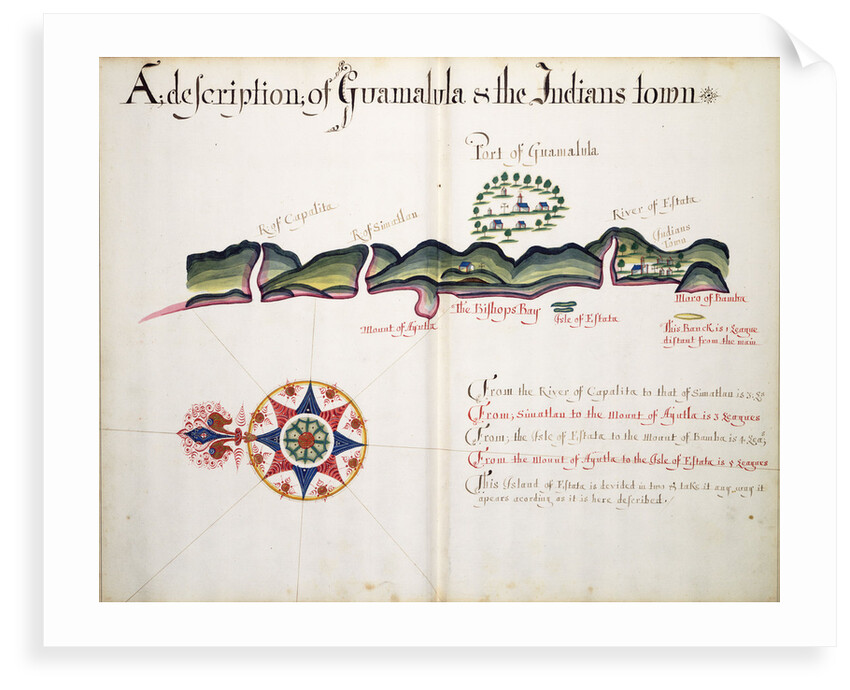 A; description; of Guamalula & the Indians town
Port of Guamalula
R of Capalita
R of Simatlan
River of Estata
Indians
town
Moro of Bamba
The Bishops Bay
Isle of Estata
Mount of Ayutla
This Banck is 1 League
distant from the main
From the River of Capalita to that of Simatlan is 3: Lˢ
From; Simatlan to the Mount of Ayutla is 3 Leagues
From; the Isle of Estata to the Mount of Bamba is 4 Leaˢ;
From the Mount of Ayutla to the Isle of Estata is 4 Leagues
This Island of Estata is devided in two & take it any way it
apears acording as it is here described.